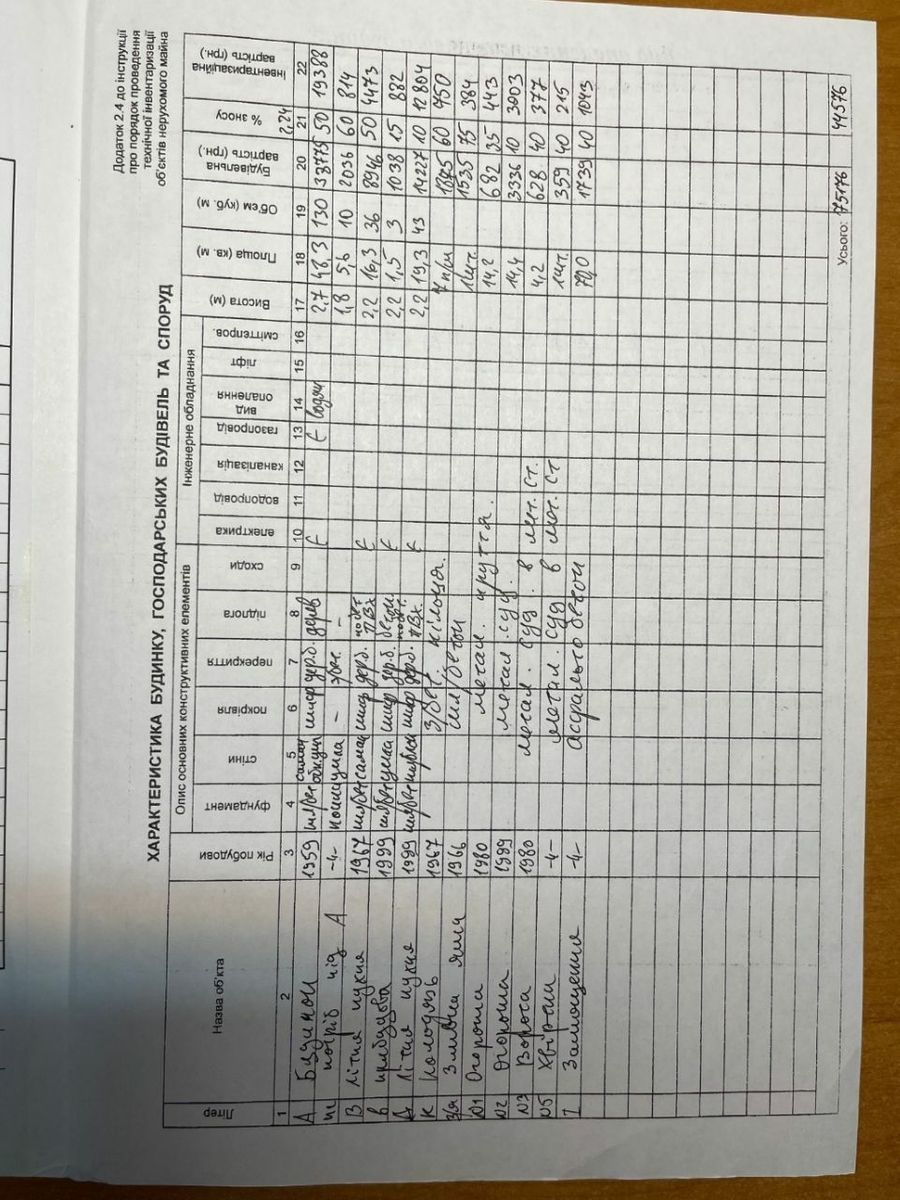 Додаток 2.4 до інструкції
про порядок проведення
технічної інвентаризації
об'єктів нерухомого майна
ХАРАКТЕРИСТИКА БУДИНКУ, ГОСПОДАРСЬКИХ БУДІВЕЛЬ ТА СПОРУД
Літер Назва об'єкта Рік побудови Опис основних конструктивних елементів Інженерне обладнання Висота (м) Площа (кв. м) Об'єм (куб. м) Будівельна вартість (грн.) % зносу Інвентаризаційна вартість (грн.)
фундамент стіни покрівля перекриття підлога сходи електрика водопровід каналізація газопровід вид опалення ліфт сміттєпров.
2,24
1 2 3 4 5 6 7 8 9 10 11 12 13 14 15 16 17 18 19 20 21 22
А Будинок 1959 саман шифер дер.б. дерев Є Є водян 2,7 48,3 130 38775 50 19388
пг погріб під А -"- - - 1,8 5,6 10 2036 60 814
В Літня кухня 1967 саман шиф дер.б. Є 2,2 16,3 36 8946 50 4473
в прибудова 1999 шиф дер.б. бетон Є 2,2 1,5 3 1038 15 882
Д Літня кухня 1999 шиф дер.б. Є 2,2 19,3 43 14227 10 12804
К Колодязь 1967 З/бет. кільця. 7 п/м 1875 60 750
З/я Зливна яма 1966 шл/бетон 1шт. 1535 75 384
N1 Огорожа 1980 метал. прутта. 14,2 682 35 443
N2 Огорожа 1999 метал. суд. 14,4 3336 10 3003
N3 Ворота 1980 метал. суд. в мет. ст. 4,2 628 40 377
N5 Хвіртка -"- метал. суд в мет. ст 1шт. 359 40 215
I Замощення -"- асфальтобетон 70,0 1739 40 1043
Усього: 75176 44576